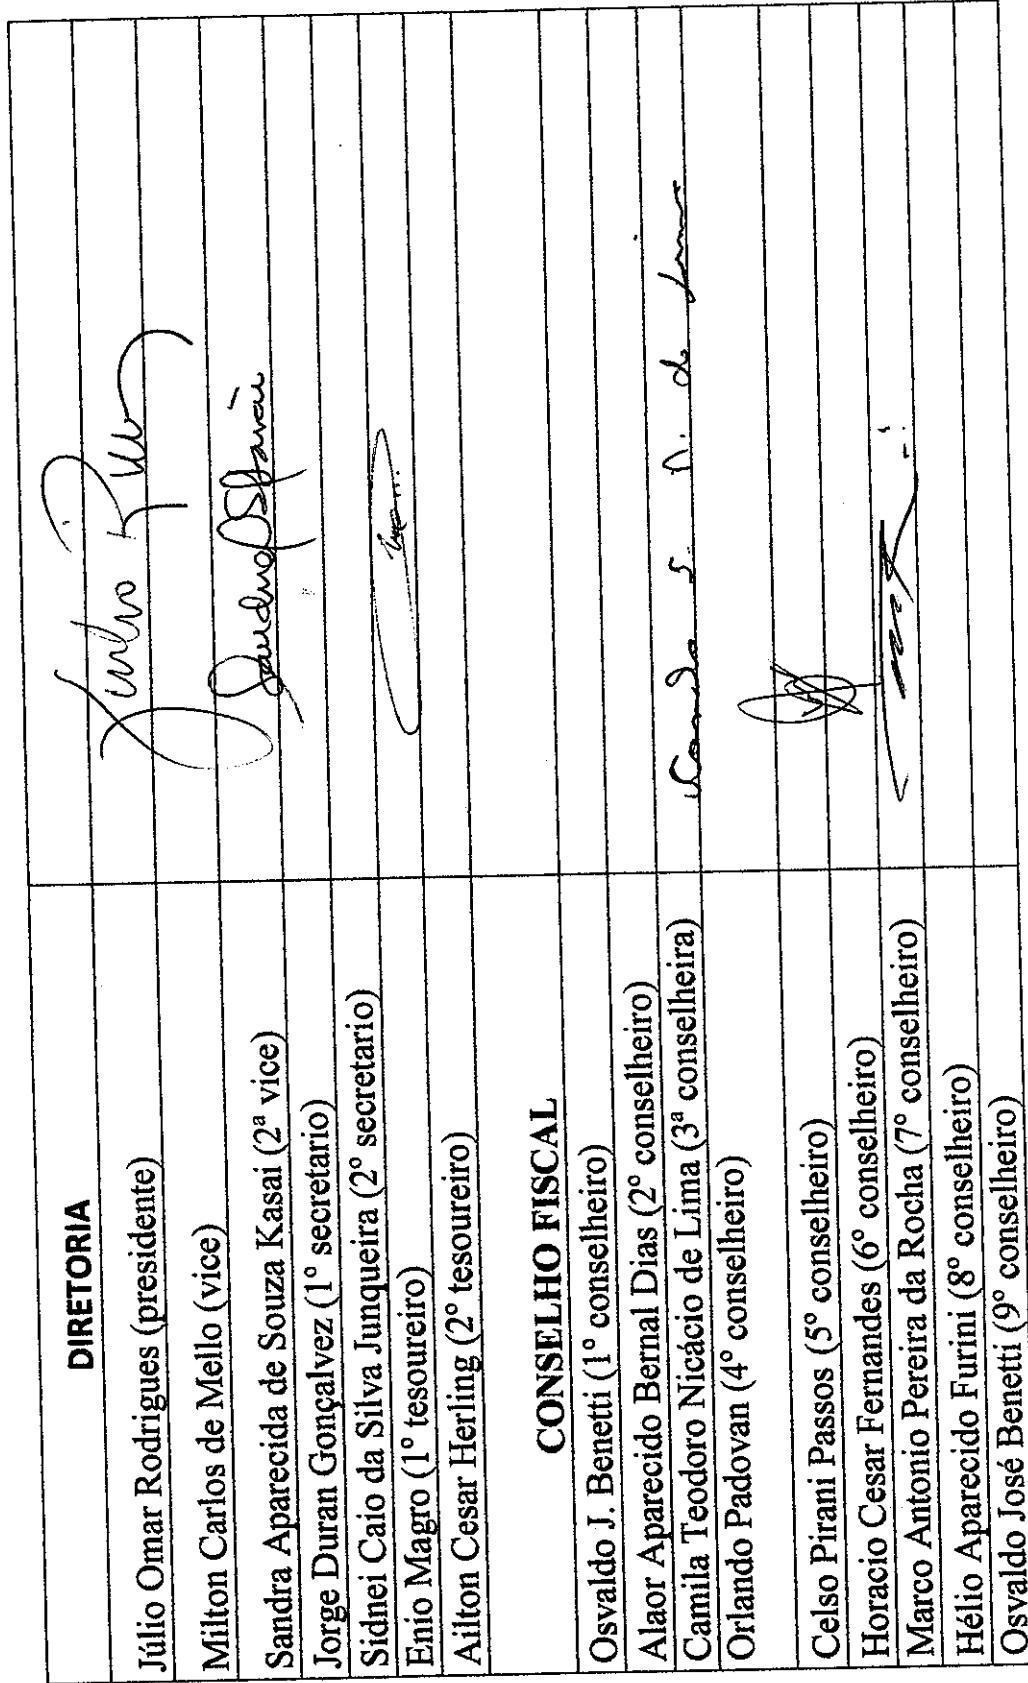 DIRETORIA
Júlio Omar Rodrigues (presidente)
Milton Carlos de Mello (vice)
Sandra Aparecida de Souza Kasai (2ª vice)
Jorge Duran Gonçalvez (1º secretario)
Sidnei Caio da Silva Junqueira (2º secretario)
Enio Magro (1º tesoureiro)
Ailton Cesar Herling (2º tesoureiro)
CONSELHO FISCAL
Osvaldo J. Benetti (1º conselheiro)
Alaor Aparecido Bernal Dias (2º conselheiro)
Camila Teodoro Nicácio de Lima (3ª conselheira)
Orlando Padovan (4º conselheiro)
Celso Pirani Passos (5º conselheiro)
Horacio Cesar Fernandes (6º conselheiro)
Marco Antonio Pereira da Rocha (7º conselheiro)
Hélio Aparecido Furini (8º conselheiro)
Osvaldo José Benetti (9º conselheiro)